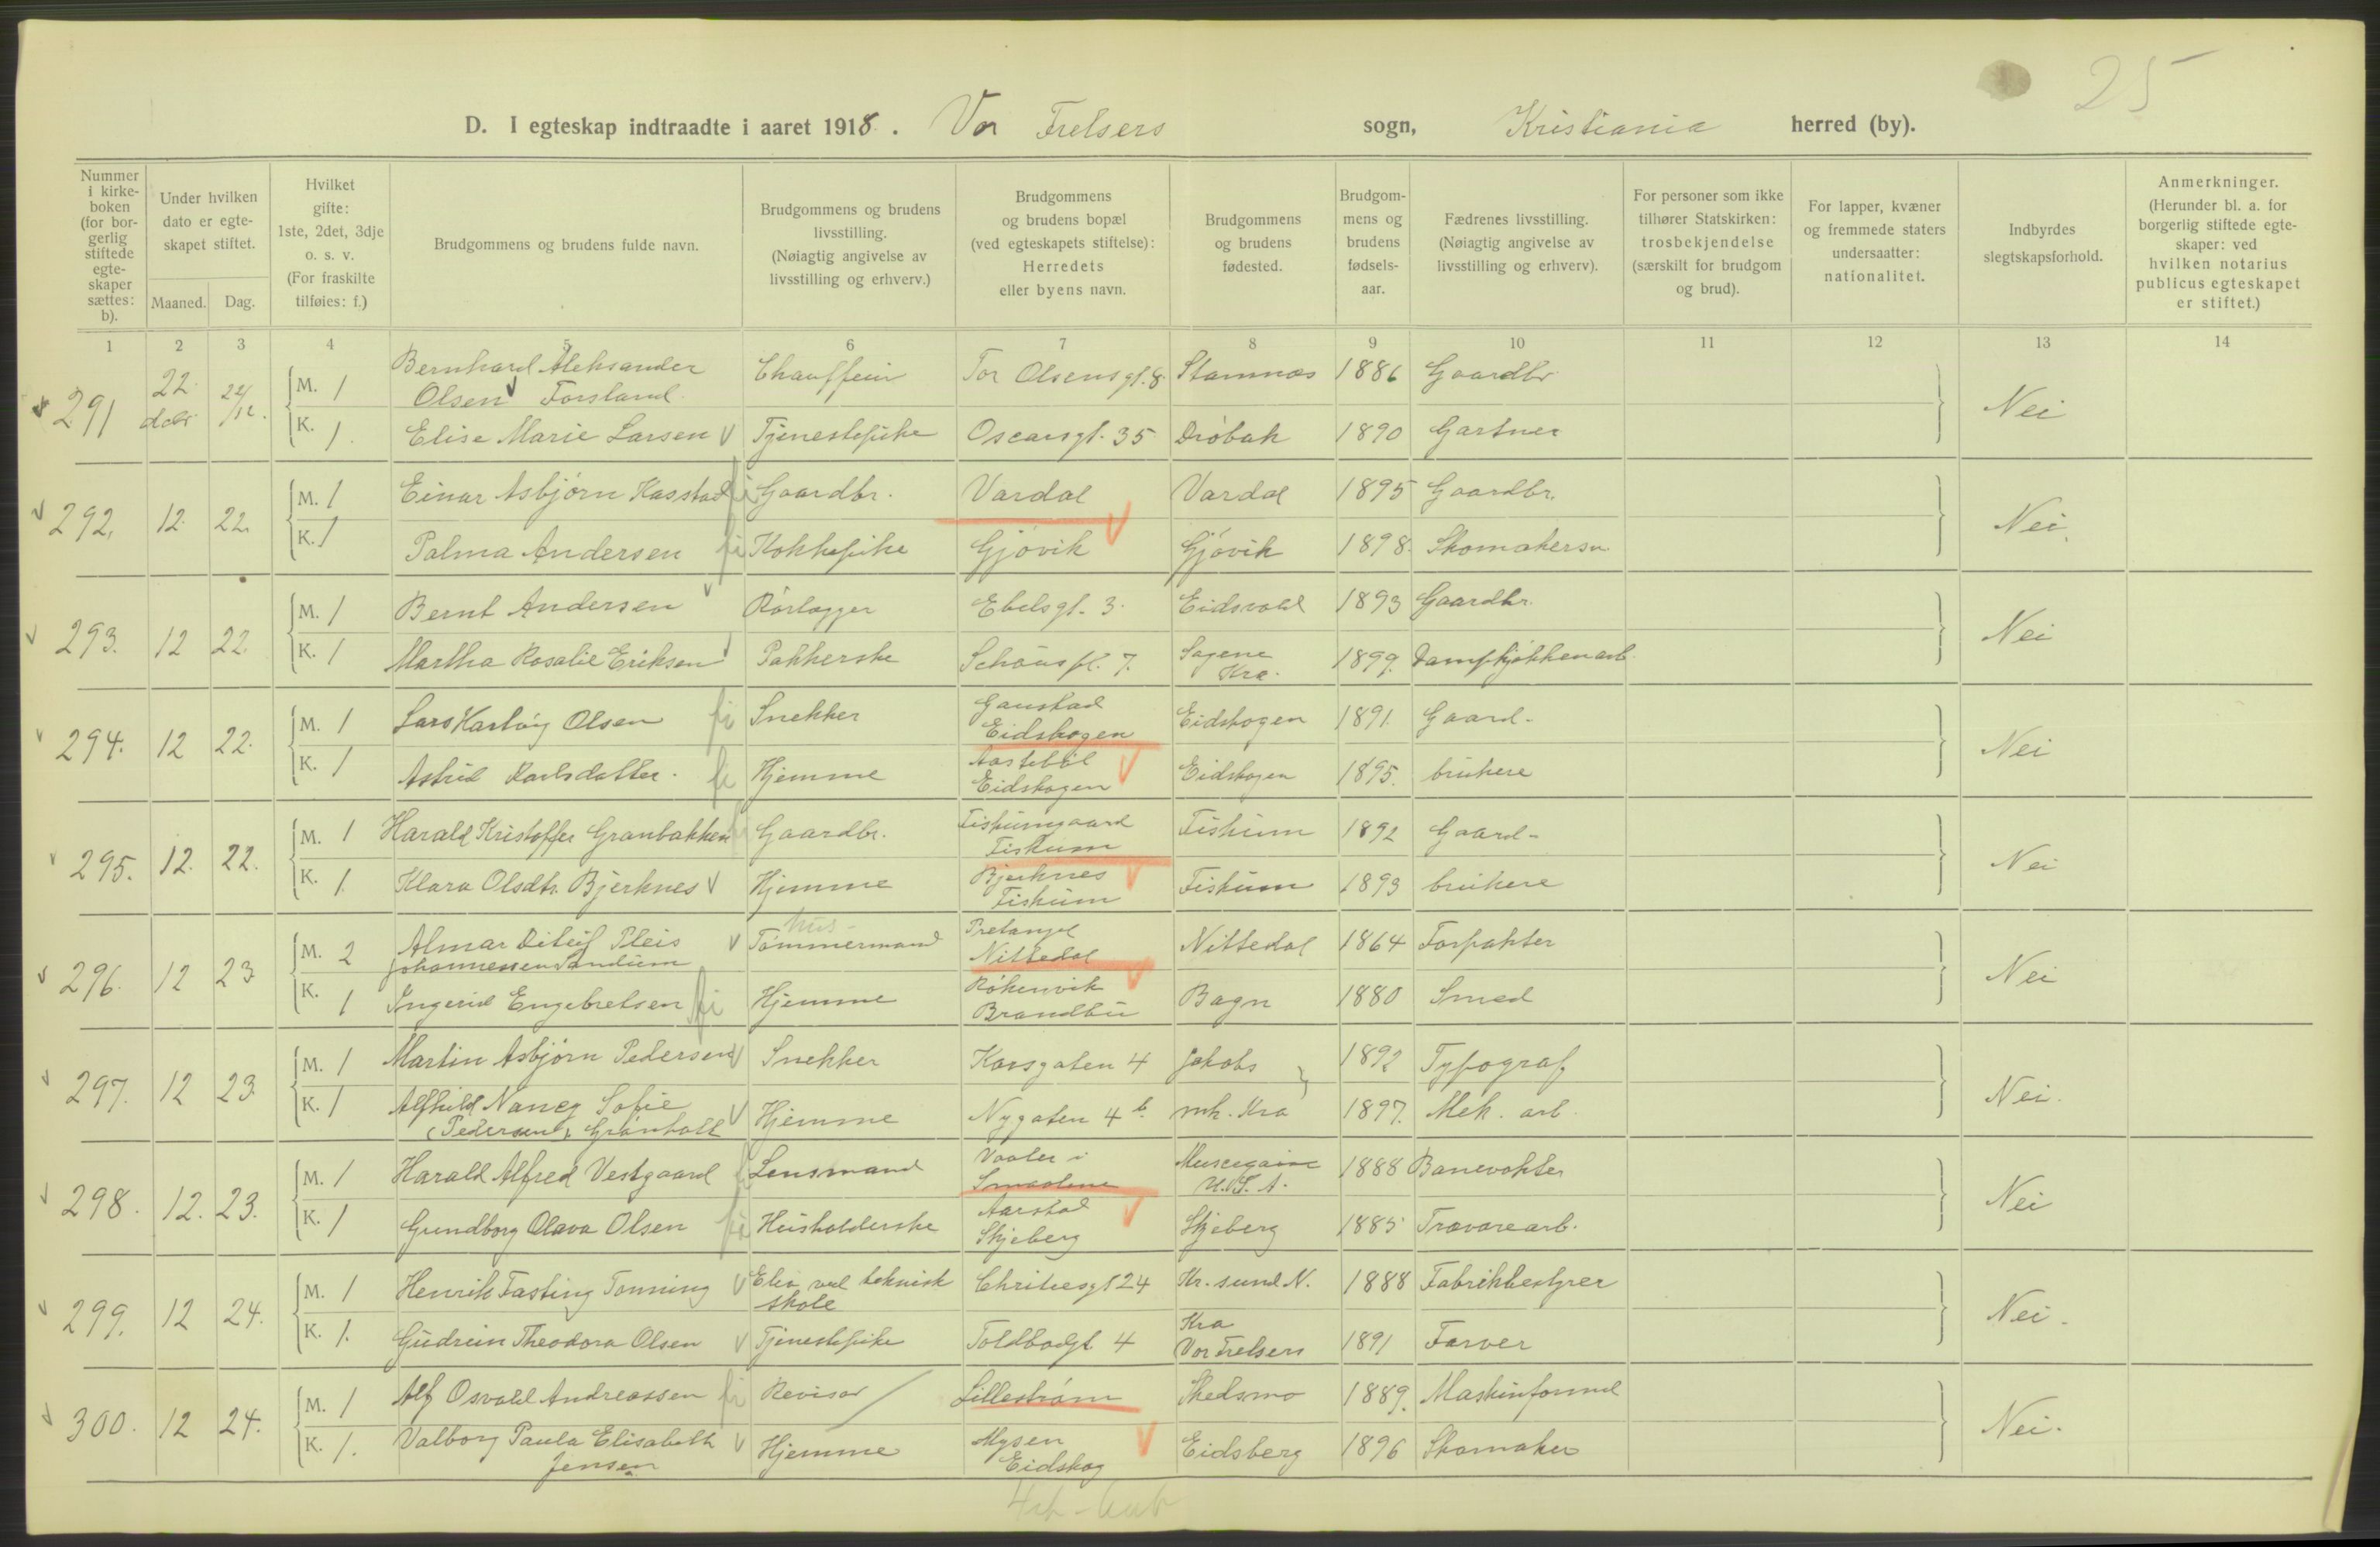 25
D. I egteskap indtraadte i aaret 1918. Vor Frelsers sogn, Kristiania herred (by).
Nummer i kirkeboken (for borgerlig stiftede egteskaper sættes: b).
Under hvilken dato er egteskapet stiftet.
Maaned. Dag.
Hvilket gifte: 1ste, 2det, 3dje o. s. v. (For fraskilte tilføies: f.)
Brudgommens og brudens fulde navn.
Brudgommens og brudens livsstilling. (Nøiagtig angivelse av livsstilling og erhverv.)
Brudgommens og brudens bopæl (ved egteskapets stiftelse): Herredets eller byens navn.
Brudgommens og brudens fødested.
Brudgommens og brudens fødselsaar.
Fædrenes livsstilling. (Nøiagtig angivelse av livsstilling og erhverv).
For personer som ikke tilhører Statskirken: trosbekjendelse (særskilt for brudgom og brud).
For lapper, kvæner og fremmede staters undersaatter: nationalitet.
Indbyrdes slegtskapsforhold.
Anmerkninger. (Herunder bl. a. for borgerlig stiftede egteskaper: ved hvilken notarius publicus egteskapet er stiftet.)
1 2 3 4 5 6 7 8 9 10 11 12 13 14
291 22 22/12. M. 1 Bernhard Aleksander Olsen Forsland Chauffeur Tor Olsensgt. 8 Stamnes 1886 Gaardbr. Nei
K. 1. Elise Marie Larsen Tjenestepike Oscarsgt. 35 Drøbak 1890 Gartner
292. 12. 22. M. 1 Einar Asbjørn Kasstad Gaardbr. Vardal Vardal 1895 Gaardbr. Nei.
K. 1 Palma Andersen Kokkepike Gjøvik Gjøvik 1898. Skomakersv.
293. 12 22. M. 1 Bernt Andersen Rørlægger Ebelsgt. 3. Eidsvold 1893 Gaardbr. Nei
K. 1 Martha Rosalie Eriksen Pakkerske Schouspl. 7. Sagene Kra. 1899. Dampkjøkkenarb.
294. 12 22. M. 1 Lars Hartvig Olsen Snekker Gaustad Eidskogen Eidskogen 1891. Gaard- Nei
K. 1 Astrid Karlsdatter. Hjemme Eidskogen Eidskogen 1895. brukere
295. 12. 22. M. 1 Harald Kristoffer Granbakken Gaardbr. Fiskumgaard Fiskum Fiskum 1892 Gaard- Nei
K. 1. Klara Olsdtr. Bjerknes Hjemme Bjerknes Fiskum Fiskum 1893 brukere
296. 12 23 M. 2 Almar Ditleif Pleis Johannessen Sandum hus- Tømmermand Nittedal Nittedal 1864 Forpakter Nei
K. 1 Ingerid Engebretsen Hjemme Røkenvik Brandbu Bagn 1880 Smed
297. 12 23. M. 1 Martin Asbjørn Pedersen Snekker Korsgaten 4 Jakobs 1892 Typograf Nei.
K. 1 Alfhild Nancy Sofie (Pedersen) Grønholt Hjemme Nygaten 4 b. mh. Kra 1897. Mek. arb.
298. 12. 23. M. 1 Harald Alfred Vestgaard Lensmand Vaaler i Smaalene U.S.A. 1888 Banevokter Nei
K. 1 Gundborg Olava Olsen Husholderske Skjeberg Skjeberg 1885 Trævarearb.
299. 12 24. M. 1 Henrik Fasting Tonning Elev ved teknisk skole Christiesgt 24 Kr. sund N. 1888 Fabrikbestyrer Nei.
K. 1. Gudrun Theodora Olsen Tjenestepike Toldbodgt 4 Kra Vor Frelsers 1891 Farver
300. 12 24. M. 1 Alf Osvald Andreassen Revisor Lillestrøm Skedsmo 1889. Maskinformd Nei.
K. 1. Valborg Paula Elisabeth Jensen Hjemme Mysen Eidskog Eidsberg 1896 Skomaker